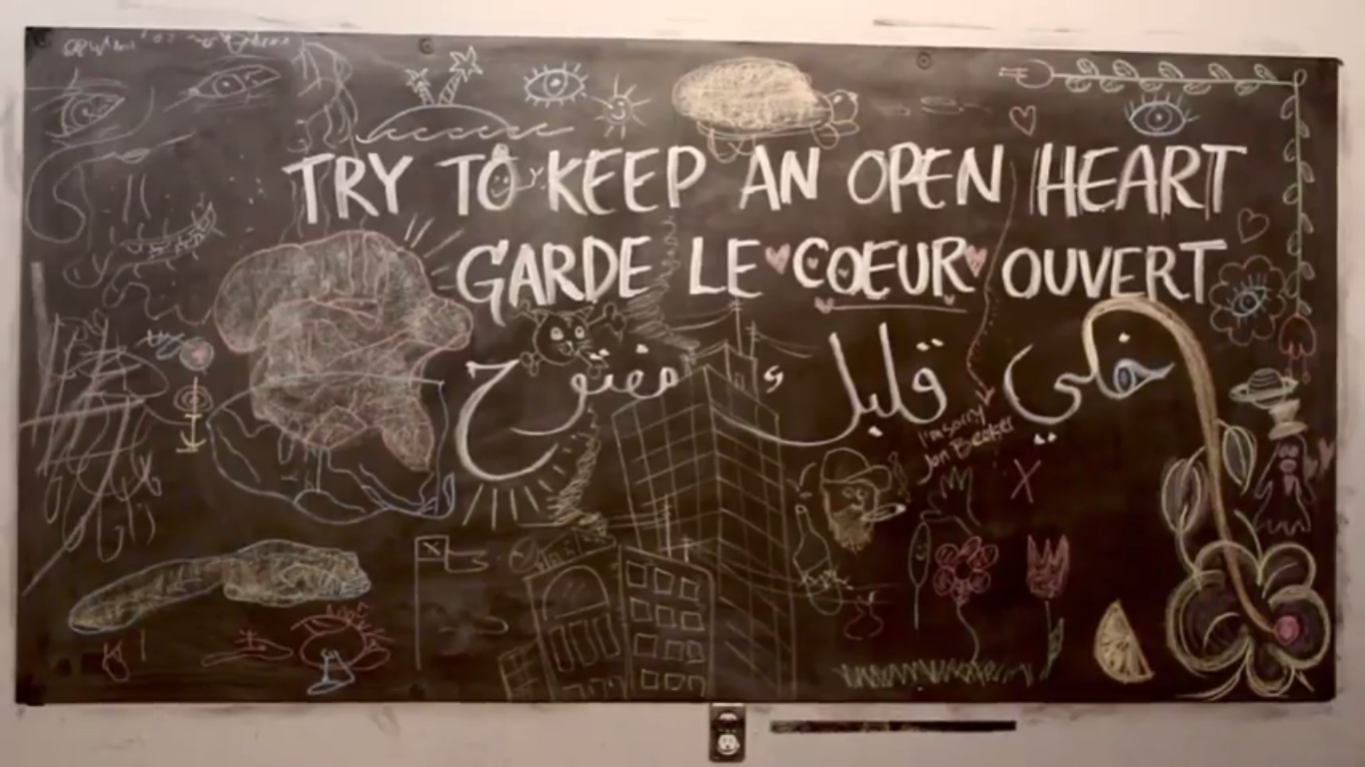 TRY TO KEEP AN OPEN HEART
GARDE LE COEUR OUVERT
خلي قلبك مفتوح
I'm sorry!
Jon Becker